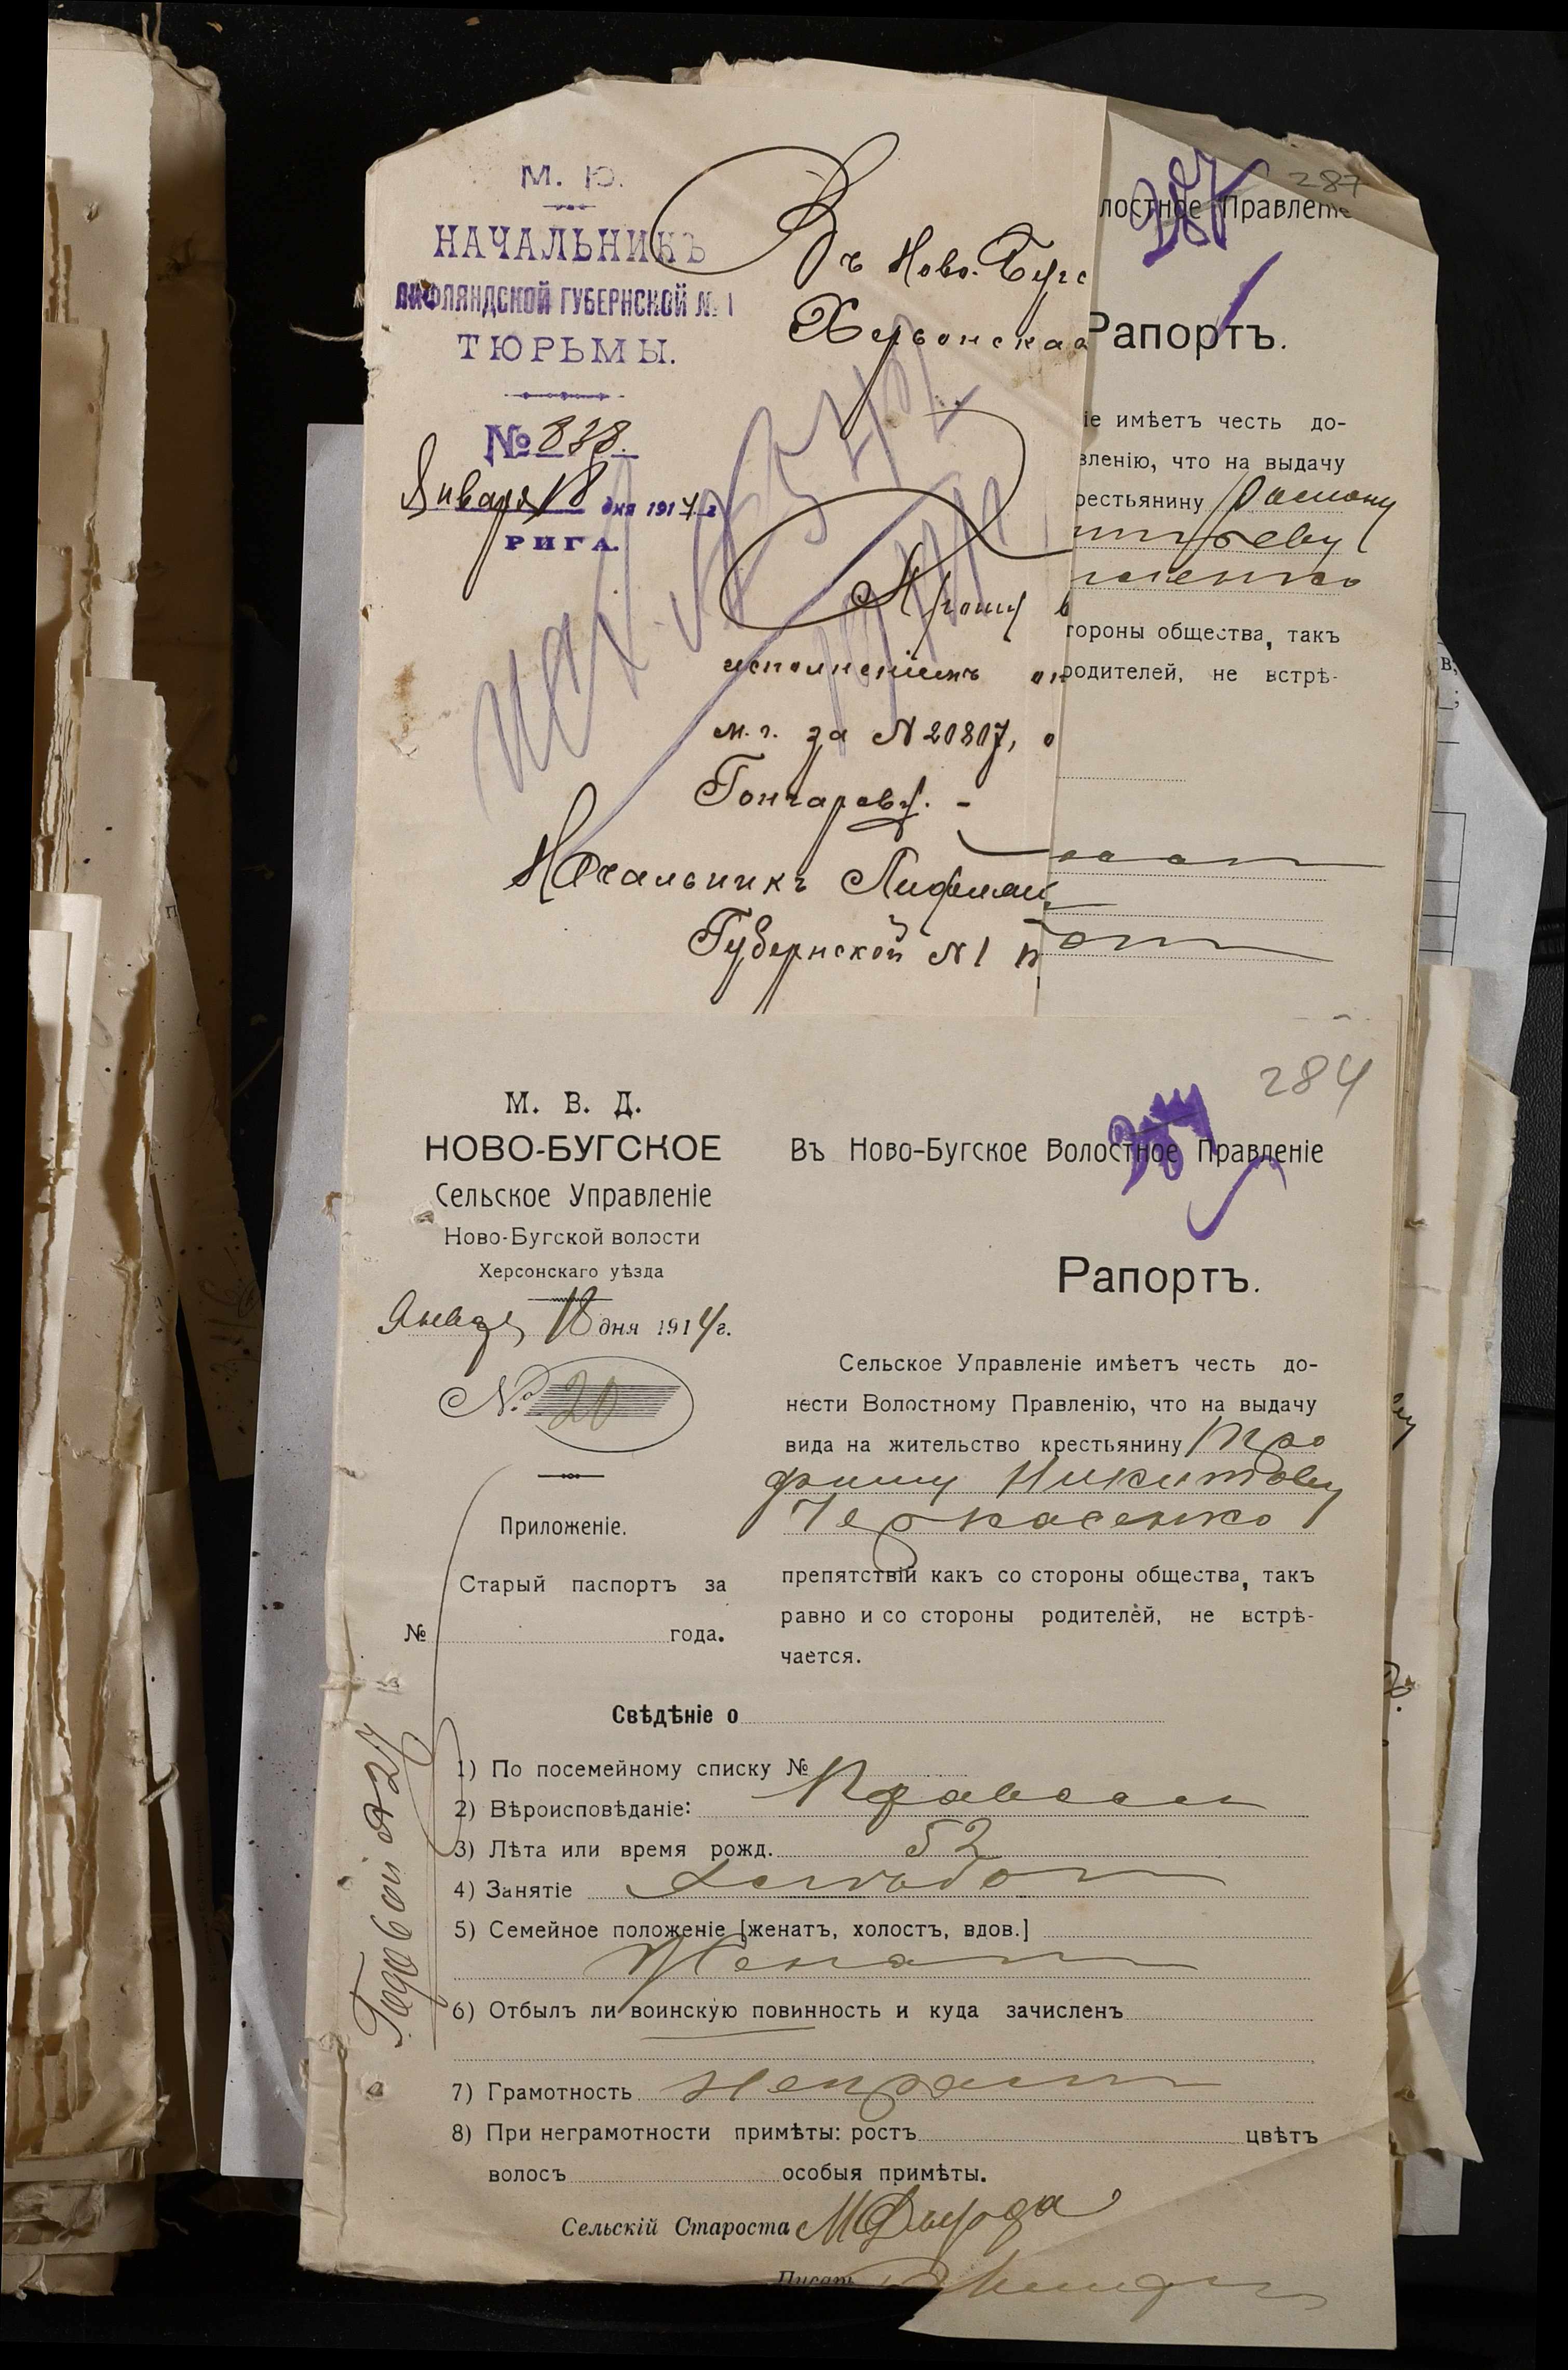 М. Ю.
НАЧАЛЬНИКЪ
ЛИФЛЯНДСКОЙ ГУБЕРНСКОЙ № 1
ТЮРЬМЫ.
№ 838.
Января 18 дня 1917 г
РИГА.
Въ Ново-Бугс
Херсонская
Прошу в
исполненіемъ
м.г. за N 20807, о
Гончаровѣ. -
Начальникъ Лифлян
Губернской N1
287
лостное Правленіе
Рапортъ.
іе имѣетъ честь до-
вленію, что на выдачу
рестьянину
тороны общества, такъ
родителей, не встрѣ-
284
М. В. Д.
НОВО-БУГСКОЕ
Сельское Управленіе
Ново-Бугской волости
Херсонскаго уѣзда
Январ 18 дня 1914 г.
№ 20
Приложеніе.
Старый паспортъ за
№ года.
Годовой № 27
Въ Ново-Бугское Волостное Правленіе
Рапортъ.
Сельское Управленіе имѣетъ честь до-
нести Волостному Правленію, что на выдачу
вида на жительство крестьянину Тро
фиму Никитову
Черкасенко
препятствій какъ со стороны общества, такъ
равно и со стороны родителей, не встрѣ-
чается.
Свѣдѣніе о
1) По посемейному списку №
2) Вѣроисповѣданіе: Правосл
3) Лѣта или время рожд. 52
4) Занятіе Хлѣбоп
5) Семейное положеніе [женатъ, холостъ, вдов.]
Женат
6) Отбылъ ли воинскую повинность и куда зачисленъ
7) Грамотность Неграм
8) При неграмотности примѣты: ростъ цвѣтъ
волосъ особыя примѣты.
Сельскій Староста
Писарь